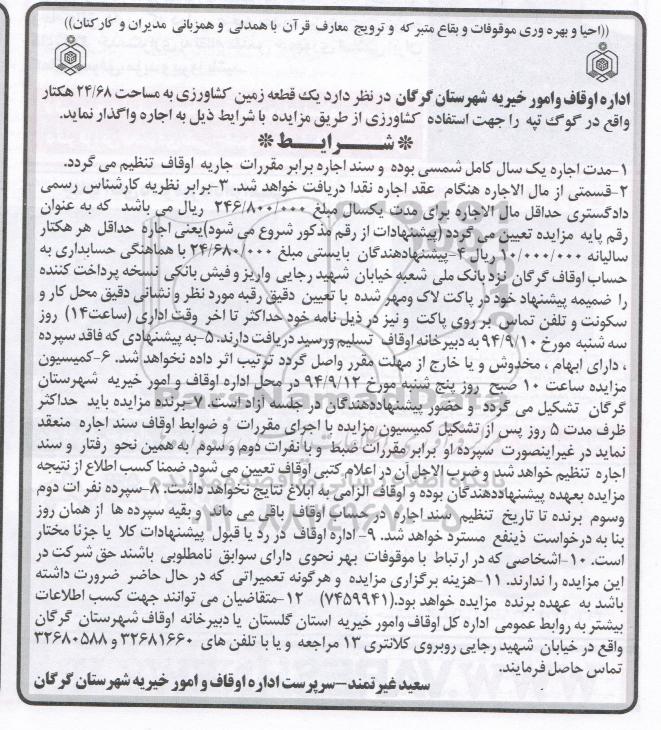 ((احیا و بهره وری موقوفات و بقاع متبرکه و ترویج معارف قرآن با همدلی و همزبانی مدیران و کارکنان))
اداره اوقاف وامور خیریه شهرستان گرگان در نظر دارد یک قطعه زمین کشاورزی به مساحت ۲۴/۶۸ هکتار
واقع در گوگ تپه را جهت استفاده کشاورزی از طریق مزایده با شرایط ذیل به اجاره واگذار نماید.
* شــــرایــــط *
۱-مدت اجاره یک سال کامل شمسی بوده و سند اجاره برابر مقررات جاریه اوقاف تنظیم می گردد.
۲-قسمتی از مال الاجاره هنگام عقد اجاره نقدا دریافت خواهد شد. ۳-برابر نظریه کارشناس رسمی
دادگستری حداقل مال الاجاره برای مدت یکسال مبلغ ۲۴۶/۸۰۰/۰۰۰ ریال می باشد که به عنوان
رقم پایه مزایده تعیین می گردد (پیشنهادات از رقم مذکور شروع می شود)یعنی اجاره حداقل هر هکتار
سالیانه ۱۰/۰۰۰/۰۰۰ ریال ۴-پیشنهادهندگان بایستی مبلغ ۲۴/۶۸۰/۰۰۰ با هماهنگی حسابداری به
حساب اوقاف گرگان نزد بانک ملی شعبه خیابان شهید رجایی واریز و فیش بانکی نسخه پرداخت کننده
را ضمیمه پیشنهاد خود در پاکت لاک ومهر شده با تعیین دقیق رقبه مورد نظر و نشانی دقیق محل کار و
سکونت و تلفن تماس بر روی پاکت و نیز در ذیل نامه خود حداکثر تا اخر وقت اداری (ساعت۱۴) روز
سه شنبه مورخ ۹۴/۹/۱۰ به دبیرخانه اوقاف تسلیم ورسید دریافت دارند. ۵-به پیشنهادی که فاقد سپرده
، دارای ابهام ، مخدوش و یا خارج از مهلت مقرر واصل گردد ترتیب اثر داده نخواهد شد. ۶-کمیسیون
مزایده ساعت ۱۰ صبح روز پنج شنبه مورخ ۹۴/۹/۱۲ در محل اداره اوقاف و امور خیریه شهرستان
گرگان تشکیل می گردد و حضور پیشنهاددهندگان در جلسه آزاد است. ۷-برنده مزایده باید حداکثر
ظرف مدت ۵ روز پس از تشکیل کمیسیون مزایده با اجرای مقررات و ضوابط اوقاف سند اجاره منعقد
نماید در غیراینصورت سپرده او برابر مقررات ضبط و با نفرات دوم و سوم به همین نحو رفتار و سند
اجاره تنظیم خواهد شد و ضرب الاجل آن در اعلام کتبی اوقاف تعیین می شود. ضمنا کسب اطلاع از نتیجه
مزایده بعهده پیشنهاددهندگان بوده و اوقاف الزامی به ابلاغ نتایج نخواهد داشت. ۸-سپرده نفرات دوم
وسوم برنده تا تاریخ تنظیم سند اجاره در حساب اوقاف باقی می ماند و بقیه سپرده ها از همان روز
بنا به درخواست ذینفع مسترد خواهد شد. ۹-اداره اوقاف در رد یا قبول پیشنهادات کلا یا جزئا مختار
است. ۱۰-اشخاصی که در ارتباط با موقوفات بهر نحوی دارای سوابق نامطلوبی باشند حق شرکت در
این مزایده را ندارند. ۱۱-هزینه برگزاری مزایده و هرگونه تعمیراتی که در حال حاضر ضرورت داشته
باشد به عهده برنده مزایده خواهد بود.(۷۴۵۹۹۴۱) ۱۲-متقاضیان می توانند جهت کسب اطلاعات
بیشتر به روابط عمومی اداره کل اوقاف وامور خیریه استان گلستان یا دبیرخانه اوقاف شهرستان گرگان
واقع در خیابان شهید رجایی روبروی کلانتری ۱۳ مراجعه و یا با تلفن های ۳۲۶۸۱۶۶۰ و ۳۲۶۸۰۵۸۸
تماس حاصل فرمایند.
سعید غیرتمند-سرپرست اداره اوقاف و امور خیریه شهرستان گرگان